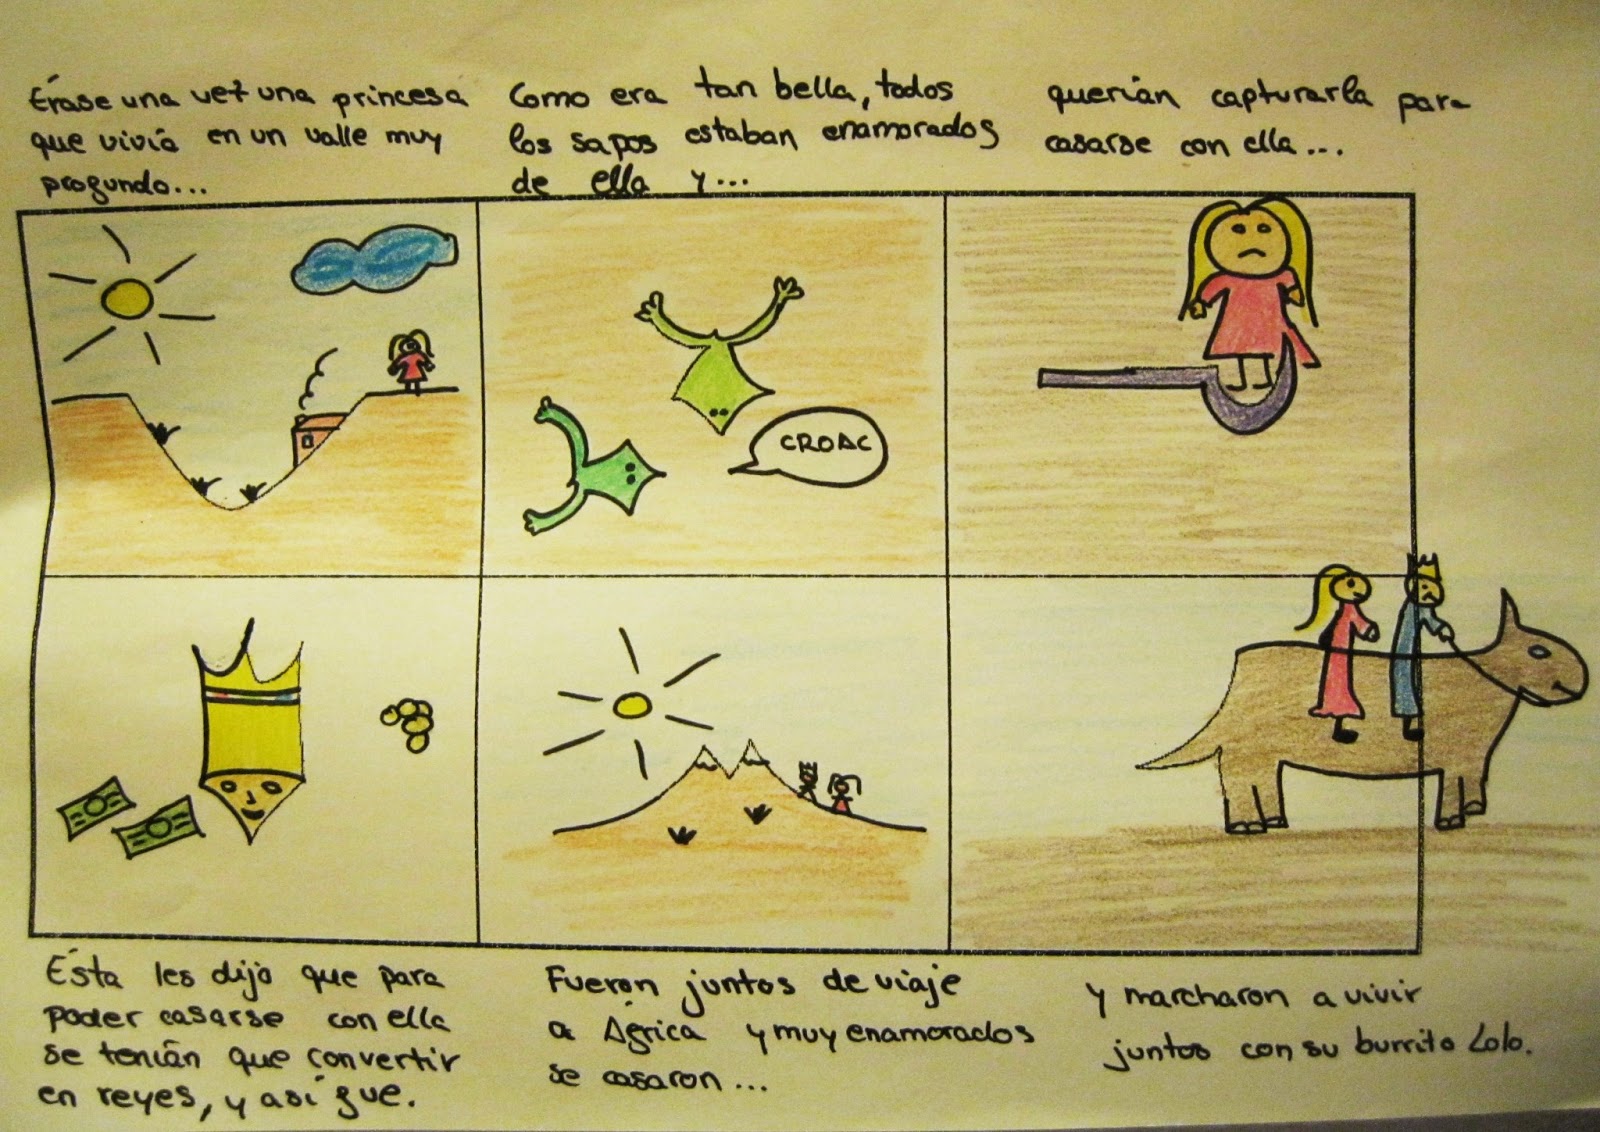 Érase una vez una princesa
que vivía en un valle muy
profundo...
Como era tan bella, todos
los sapos estaban enamorados
de ella y...
querían capturarla para
casarse con ella...
CROAC
Ésta les dijo que para
poder casarse con ella
se tenían que convertir
en reyes, y así fue.
Fueron juntos de viaje
a África y muy enamorados
se casaron...
y marcharon a vivir
juntos con su burrito Lolo.